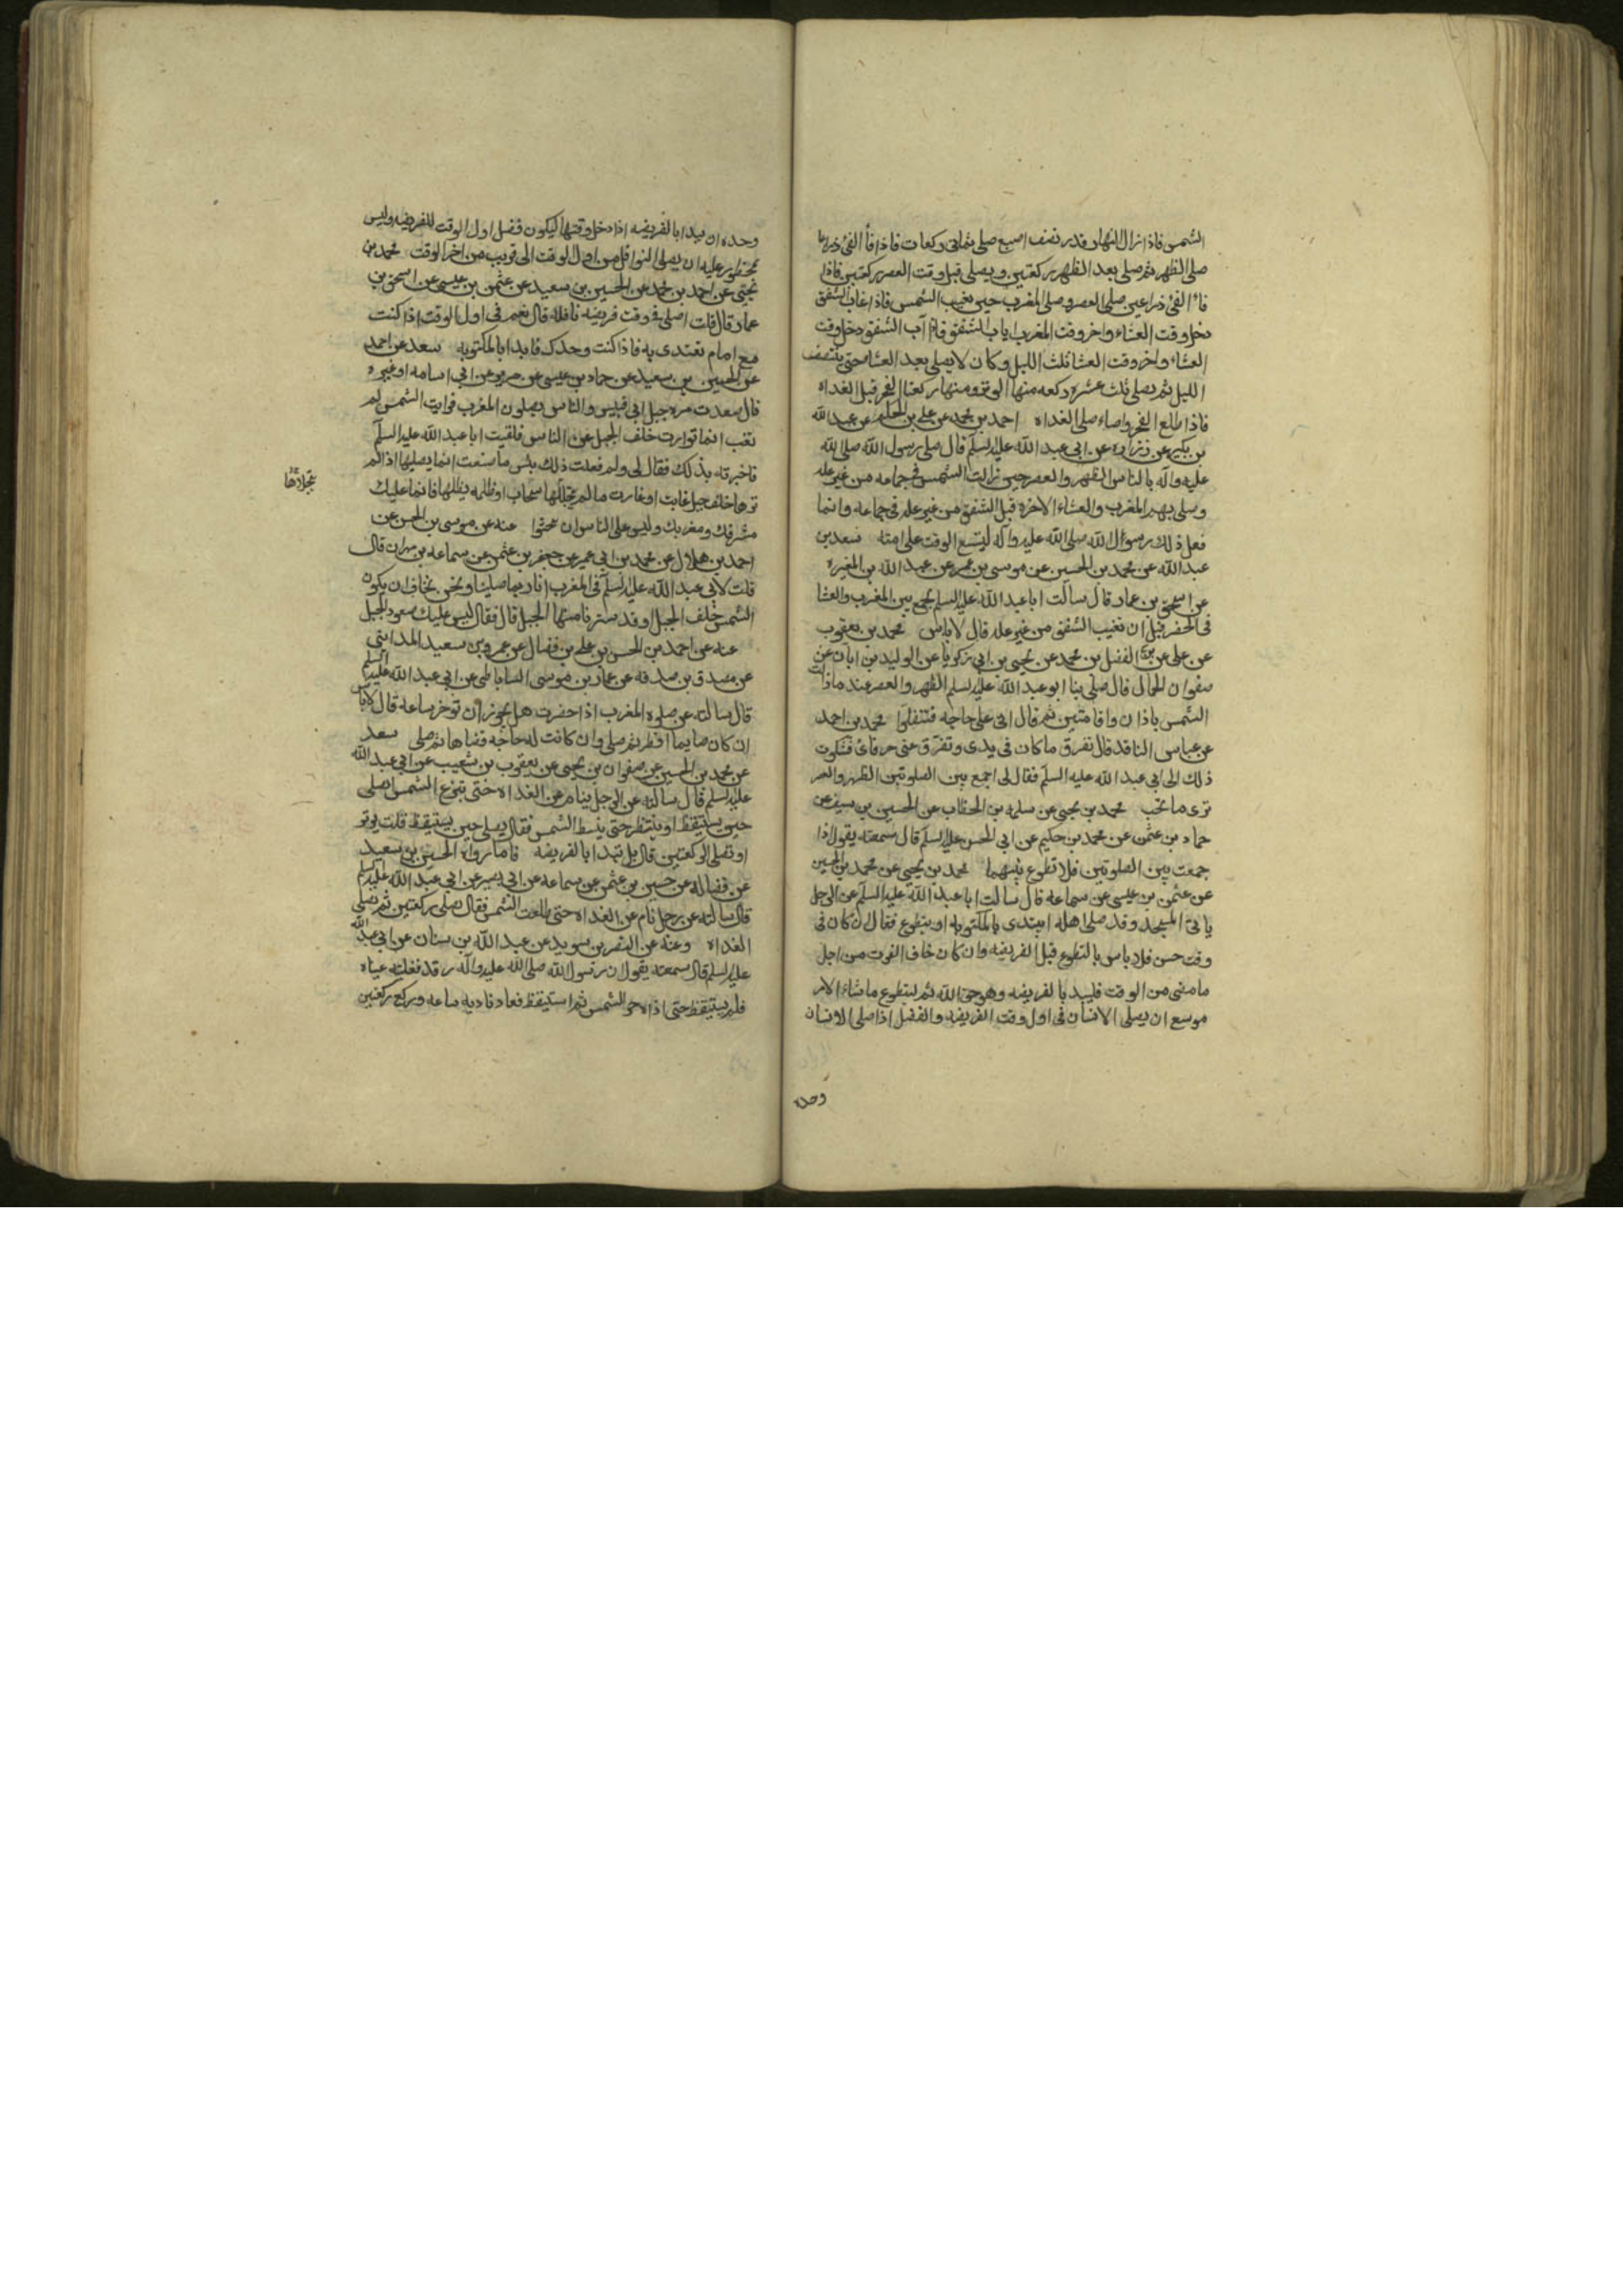 الشمس فاذا زال النهار قدر نصف اصبع صلى ثماني ركعات فاذا فأ الفئ ذراعا
صلى الظهر ثم صلى بعد الظهر ركعتين ويصلى قبل وقت العصر ركعتين فاذا
فأ الفئ ذراعين صلى العصر وصلى المغرب حين تغيب الشمس فاذا غاب الشفق
دخل وقت العشاء واخر وقت المغرب اياب الشفق فاذا آب الشفق دخل وقت
العشاء واخر وقت العشا ثلث الليل وكان لا يصلى بعد العشا حتى ينتصف
الليل ثم يصلى ثلث عشره ركعه منها الوتر ومنها ركعتا الفجر قبل الغداه
فاذا طلع الفجر واضاء صلى الغداه احمد بن محمد عن على بن الحكم عن عبد الله
بن بكير عن زراره عن ابى عبد الله عليه السلم قال صلى رسول الله صلى الله
عليه وآله بالناس الظهر والعصر حين زالت الشمس فى جماعه من غير عله
وصلى بهم المغرب والعشاء الاخره قبل الشفق من غير عله فى جماعه وانما
فعل ذلك رسول الله صلى الله عليه وآله ليتسع الوقت على امته سعد بن
عبد الله عن محمد بن الحسين عن موسى بن عمر عن عبد الله بن المغيره
عن اسحق بن عمار قال سالت ابا عبد الله عليه السلم نجمع بين المغرب والعشا
فى الحضر قبل ان تغيب الشفق من غير عله قال لا باس محمد بن يعقوب
عن على عن الفضل بن محمد عن يحيى بن ابى زكريا عن الوليد بن ابان عن
صفوان الجمال قال صلى بنا ابو عبد الله عليه السلم الظهر والعصر عند ما زالت
الشمس باذان واقامتين ثم قال انى على حاجه فتنفلوا محمد بن احمد
عن عباس الناقد قال تفرق ما كان فى يدى وتفرق عنى حرفائ فشكوت
ذلك الى ابى عبد الله عليه السلم فقال لى اجمع بين الصلوتين الظهر والعصر
ترى ما تحب محمد بن يحيى عن سلمه بن الخطاب عن الحسين بن سيف عن
حماد بن عثمن عن محمد بن حكيم عن ابى الحسن عليه السلم قال سمعته يقول اذا
جمعت بين الصلوتين فلا تطوع بينهما محمد بن يحيى عن محمد بن الحسين
عن عثمن بن عيسى عن سماعه قال سالت ابا عبد الله عليه السلم عن الرجل
ياتى المسجد وقد صلى اهله ايبتدى بالمكتوبه او يتطوع فقال ان كان فى
وقت حسن فلا باس بالتطوع قبل الفريضه وان كان خاف الفوت من اجل
ما مضى من الوقت فليبد بالفريضه وهو حق الله ثم ليتطوع ما شاء الامر
موسع ان يصلى الانسان فى اول وقت الفريضه والفضل اذا صلى الانسان
وحده
وحده ان يبدا بالفريضه اذا دخل وقتها ليكون فضل اول الوقت للفريضه وليس
بمحظور عليه ان يصلى النوافل من اول الوقت الى قريب من اخر الوقت محمد بن
يحيى عن احمد بن محمد عن الحسين بن سعيد عن عثمن بن عيسى عن اسحق بن
عمار قال قلت اصلى فى وقت فريضه نافله قال نعم فى اول الوقت اذا كنت
مع امام تقتدى به فاذا كنت وحدك فابدا بالمكتوبه سعد عن احمد
عن الحسين بن سعيد عن حماد بن عيسى عن حريز عن ابى اسامه او غيره
قال صعدت مره جبل ابى قبيس والناس يصلون المغرب فرايت الشمس لم
تغب انما توارت خلف الجبل عن الناس فلقيت ابا عبد الله عليه السلم
فاخبرته بذلك فقال لى ولم فعلت ذلك بئس ما صنعت انما يصليها اذا لم
ترها خلف جبل غابت او غارت ما لم يتجللها سحاب او ظلمه يظلها فانما عليك
تجلاها
مشرقك ومغربك وليس على الناس ان يبحثوا عنه عن موسى بن الحسن عن
احمد بن هلال عن محمد بن ابى عمير عن جعفر بن عثمن عن سماعه بن مهران قال
قلت لابى عبد الله عليه السلم فى المغرب انا ربما صلينا ونحن نخاف ان يكون
الشمس خلف الجبل او قد سترنا منها الجبل قال فقال ليس عليك صعود الجبل
عنه عن احمد بن الحسن بن على بن فضال عن عمرو بن سعيد المداينى
عن مصدق بن صدقه عن عمار بن موسى الساباطى عن ابى عبد الله عليه السلم
قال سالته عن صلوه المغرب اذا حضرت هل يجوز ان توخر ساعه قال لا باس
ان كان صايما افطر ثم صلى وان كانت له حاجه قضاها ثم صلى سعد
عن محمد بن الحسين عن صفوان بن يحيى عن يعقوب بن شعيب عن ابى عبد الله
عليه السلم قال سالته عن الرجل ينام عن الغداه حتى تبزغ الشمس ايصلى
حين يستيقظ او ينتظر حتى ينبسط الشمس فقال يصلى حين يستيقظ قلت يوتر
او تصلى الركعتين قال بل يبدا بالفريضه فاما رواه الحسين بن سعيد
عن فضاله عن حسين بن عثمن عن سماعه عن ابى بصير عن ابى عبد الله عليه السلم
قال سالته عن رجل نام عن الغداه حتى طلعت الشمس فقال يصلى ركعتين ثم يصلى
الغداه وعنه عن النضر بن سويد عن عبد الله بن سنان عن ابى عبد الله
عليه السلم قال سمعته يقول ان رسول الله صلى الله عليه وآله رقد فغلبته عيناه
فلم يستيقظ حتى اذاه حر الشمس ثم استيقظ فعاد ناديه ساعه وركع ركعتين